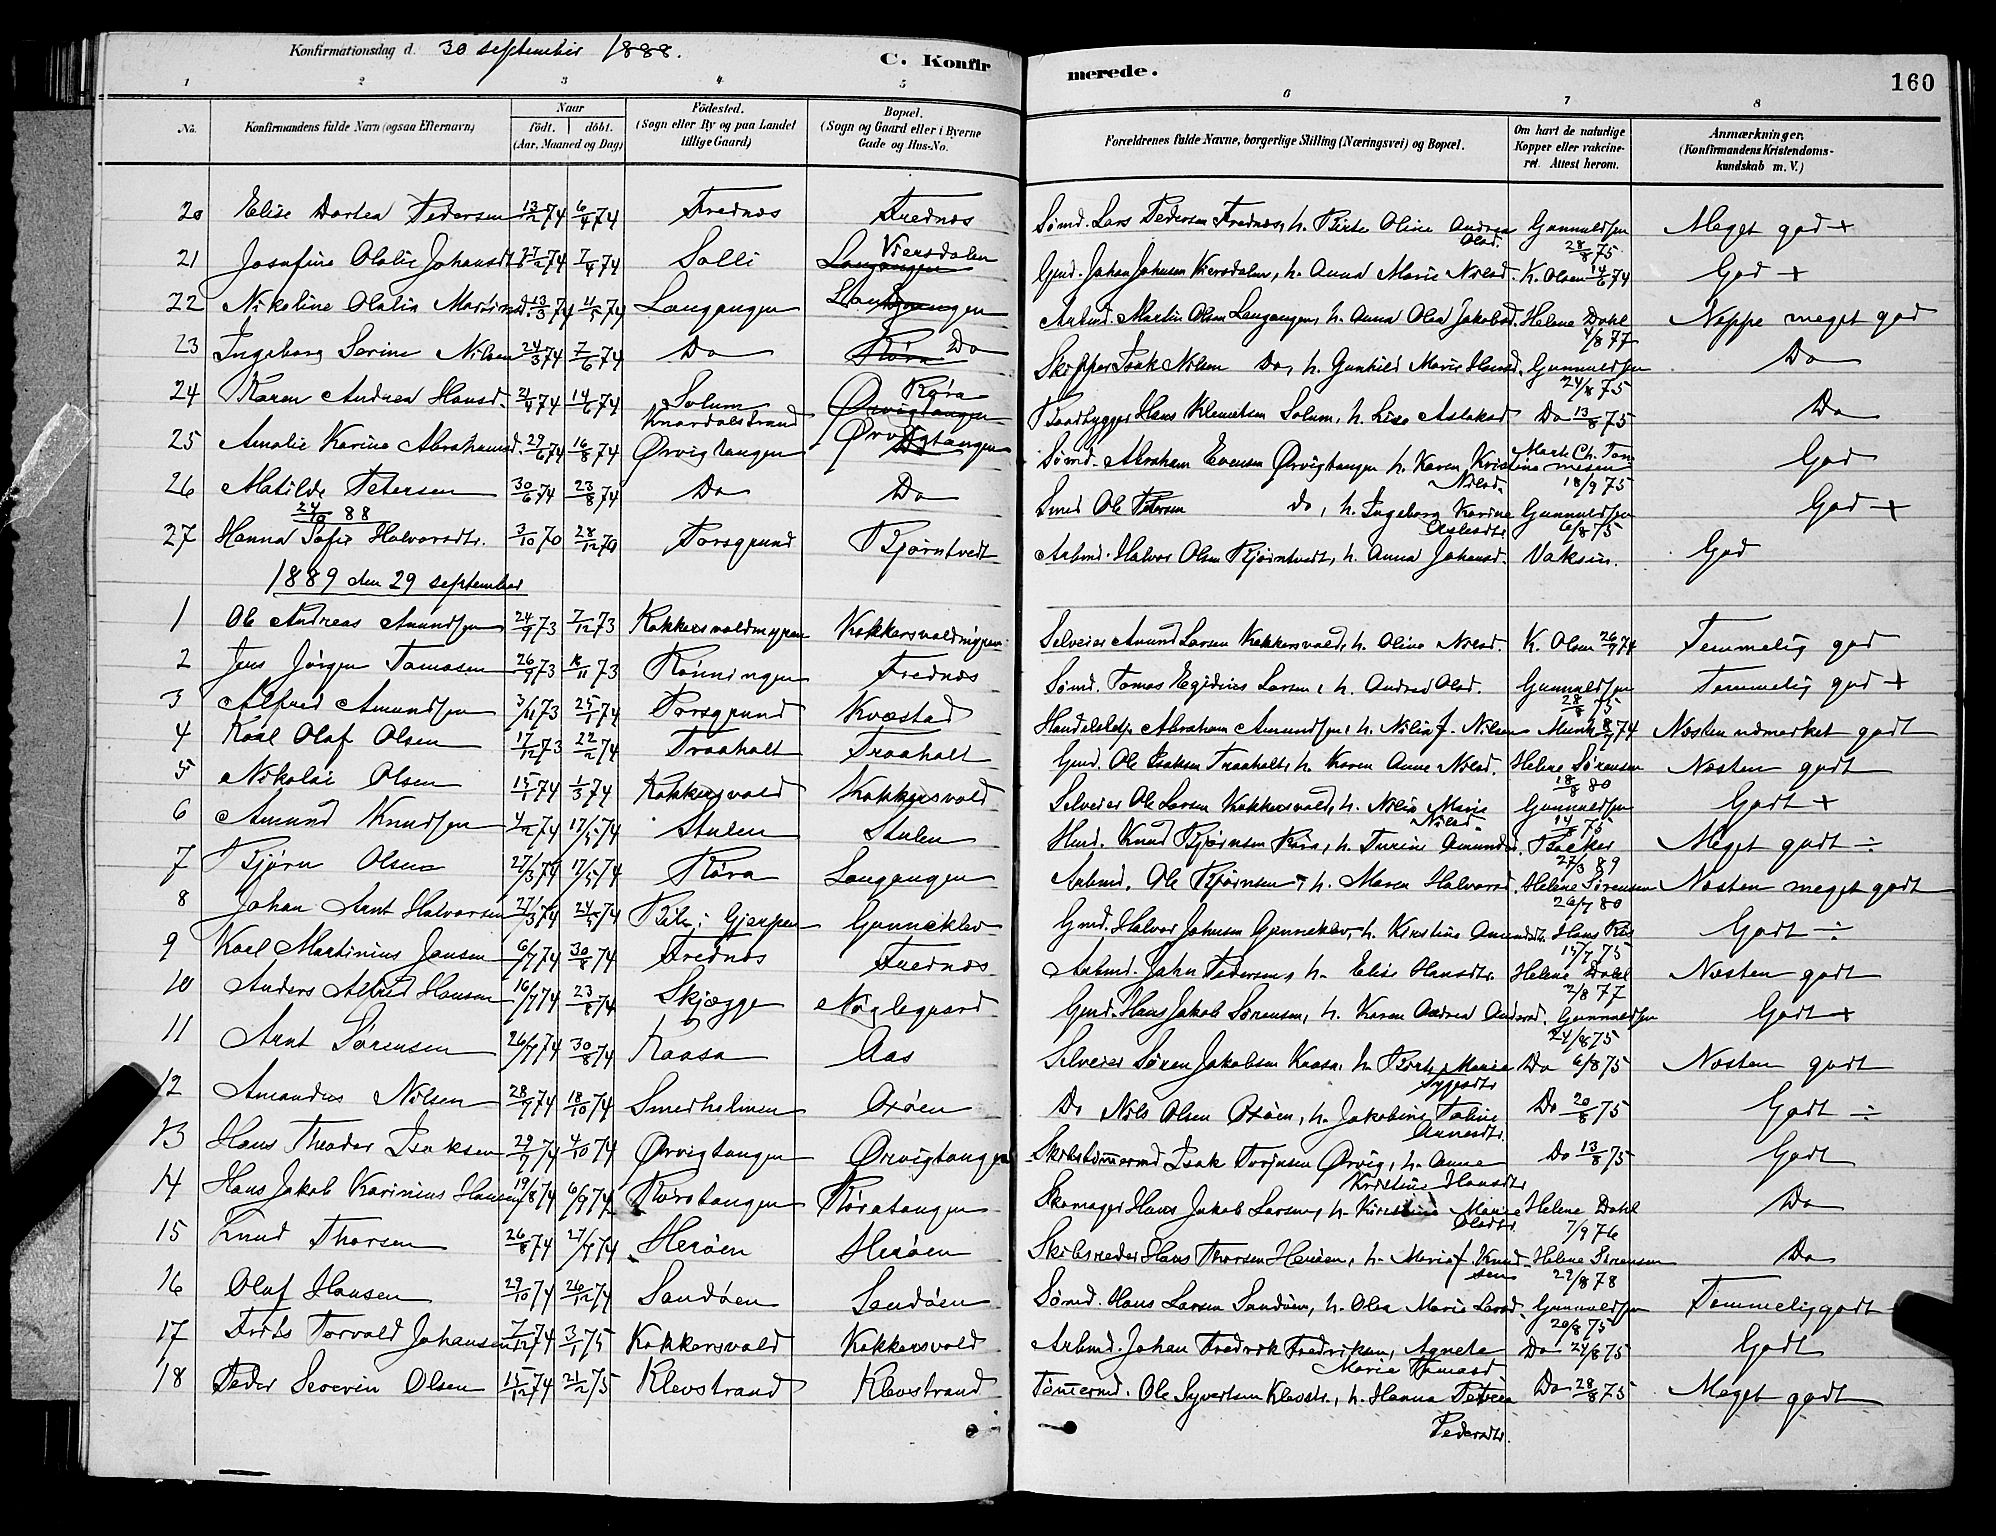 Konfirmationsdag d. 30 september 1888.
C. Konfirmerede.
160
1 2 3 4 5 6 7 8
No. Konfirmandens fulde Navn (ogsaa Efternavn) Naar födt. döbt. (Aar, Maaned og Dag) Födested. (Sogn eller By og paa Landet tillige Gaard) Bopæl. (Sogn og Gaard eller i Byerne Gade og Hus-No. Forældrenes fulde Navne, borgerlige Stilling (Næringsvei) og Bopæl. Om havt de naturlige Kopper eller vakcineret. Attest herom. Anmærkninger. (Konfirmandens Kristendomskundskab m. V.)
20 Elise Dortea Pedersen 13/2 74 6/4 74 Frednæs Frednæs Sømd. Lars Pedersen Frednæs, h. Birte Oline Andrea Olsd. Gunnuldsen 28/8 75 Meget god +
21 Josefine Olalie Johansdt 27/2 74 7/4 74 Solli Langangen Viersdalen Gmd. Johan Johnsen Viersdalen, h. Anna Marie Nilsd. K. Olsen 14/6 74 God +
22 Nikoline Olalia Martinsd. 13/3 74 11/5 74 Langangen Langangen Arbmd. Martin Olsen Langangen, h. Anna Olea Jakobsd. Helene Dahl 4/8 77 Neppe meget god
23 Ingeborg Serine Nilsen 24/3 74 7/6 74 Do Røra Do Skipper Isak Nilsen Do, h. Gunhild Marie Hansd. Gunnuldsen 24/8 75 Do
24 Karen Andrea Hansd. 21/4 74 14/6 74 Solum Knardalstrand Ørvigtangen Røra Baadbygger Hans Klemetsen Solum, h. Lise Aslaksd Do 13/8 75 Do
25 Amalie Karine Abrahamsd. 29/6 74 16/8 74 Ørvigtangen Ørvigtangen Do Sømd. Abraham Evensen Ørvigtangen h. Karen Kristine Nilsd. Marti Ch. Tommesen 18/9 75 God
26 Matilde Petersen 30/6 74 23/8 74 Do Do Smed Ole Petersen do, h. Ingeborg Karine Gunnuldsen 6/8 75 God +
24/10 88
27 Hanna Sofie Halvorsdtr. 3/10 70 28/12 70 Porsgrund Bjørntvedt Arbmd. Halvor Olsen Bjørntvedt, h. Anna Johansd. Vaksin. God
1889 den 29 september
1 Ole Andreas Amundsen 24/9 73 7/12 73 Kokkersvoldmyren Kokkersvoldmyren Selveier Amund Larsen Kokkersvold, h. Oline Nilsd. K. Olsen 26/9 74 Temmelig god
2 Jens Jörgen Tomasen 26/9 73 16/11 73 Rönningen Frednæs Sømd. Tomas Egidius Larsen, h. Andrea Olsd. Gunnuldsen 28/8 75 Temmelig god +
3 Alfred Amundsen 3/11 73 25/1 74 Porsgrund Kvæstad Handelsbetj. Abraham Amundsen, h. Nilia f. Nilsen Munk 8/7 74 Næsten udmærket godt
4 Karl Olaf Olsen 17/12 73 22/2 74 Traaholt Traaholt Gmd. Ole Isaksen Traaholt, h. Karen Anne Nilsd. Helene Sörensen 18/8 80 Næsten godt
5 Nikolai Olsen 15/1 74 1/3 74 Kokkersvold Kokkersvold Selveier Ole Larsen Kokkersvold, h. Nilia Marie Nilsd. Gunnuldsen 14/8 75 Godt +
6 Amund Knudsen 4/2 74 17/5 74 Stulen Stulen Husmd. Knud Bjørnsen Riis, h. Turine Amundsd. Backer 27/3 89 Meget godt ÷
7 Björn Olsen 27/3 74 17/5 74 Røra Langangen Arbmd. Ole Björnsen, h. Maren Halvorsd. Helene Sørensen 26/7 80 Næsten meget godt
8 Johan Arnt Halvorsen 27/3 74 24/5 74 i Gjerpen Gunneklev Gmd. Halvor Johnsen Gunneklev, h. Kirstine Amundsdt. Hans Riis 15/7 75 Godt ÷
9 Karl Martinius Jansen 6/7 74 30/8 74 Frednæs Frednæs Arbmd. John Pedersen, h. Elise Hansdtr. Helene Dahl 2/8 77 Næsten godt
10 Anders Alfred Hansen 16/7 74 23/8 74 Skjægge Nøglegaard Gmd. Hans Jakob Sørensen, h. Karen Andrea Andersd. Gunnuldsen 24/8 75 Godt +
11 Arnt Sörensen 26/7 74 30/8 74 Kaasa Aas Selveier Søren Jakobsen Kaasa, h. Berte Maria Do 6/8 75 Næsten godt
12 Amandus Nilsen 28/9 74 18/10 74 Smedholmen Oxöen Do Nils Olsen Oxöen, h. Jakobine Taline Arnesdtr. Do 20/8 75 Godt ÷
13 Hans Theodor Isaksen 29/7 74 4/10 74 Ørvigtangen Ørvigtangen Skibstömermd Isak Torjusen Ørvig, h. Anne Kristine Hansdtr Do 13/8 75 Godt
14 Hans Jakob Karinius Hansen 19/8 74 6/9 74 Röratangen Röratangen Skomager Hans Jakob Larsen, h. Kirstine Marie Olsdtr. Helene Dahl 7/9 76 Do
15 Knud Thorsen 26/8 74 27/9 74 Heröen Heröen Skibsreder Hans Thorsen Heröen, h. Maria f. Knudsen Helene Sørensen 29/8 78 Do
16 Olaf Hansen 29/10 74 26/12 74 Sandöen Sandöen Sømd. Hans Larsen Sandöen, h. Olea Marie Larsd. Gunnuldsen 20/8 75 Temmelig godt
17 Frits Torvald Johansen 7/12 74 3/1 75 Kokkersvold Kokkersvold Arbmd. Johan Fredrik Fredriksen, Agnete Marie Tomasd Do 24/8 75 Godt
18 Peder Severin Olsen 15/12 74 21/2 75 Klevstrand Klevstrand Tömermd. Ole Syvertsen Klevstr., h. Hanna Petrea Pedersdtr. Do 28/8 75 Meget godt